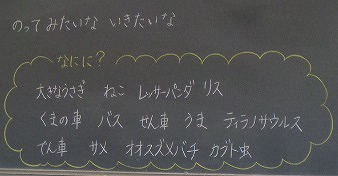 のって みたいな いきたいな
なにに？
大きなうさぎ ねこ レッサーパンダ リス
くまの車 バス せん車 うま ティラノサウルス
でん車 サメ オオスズメバチ カブト虫